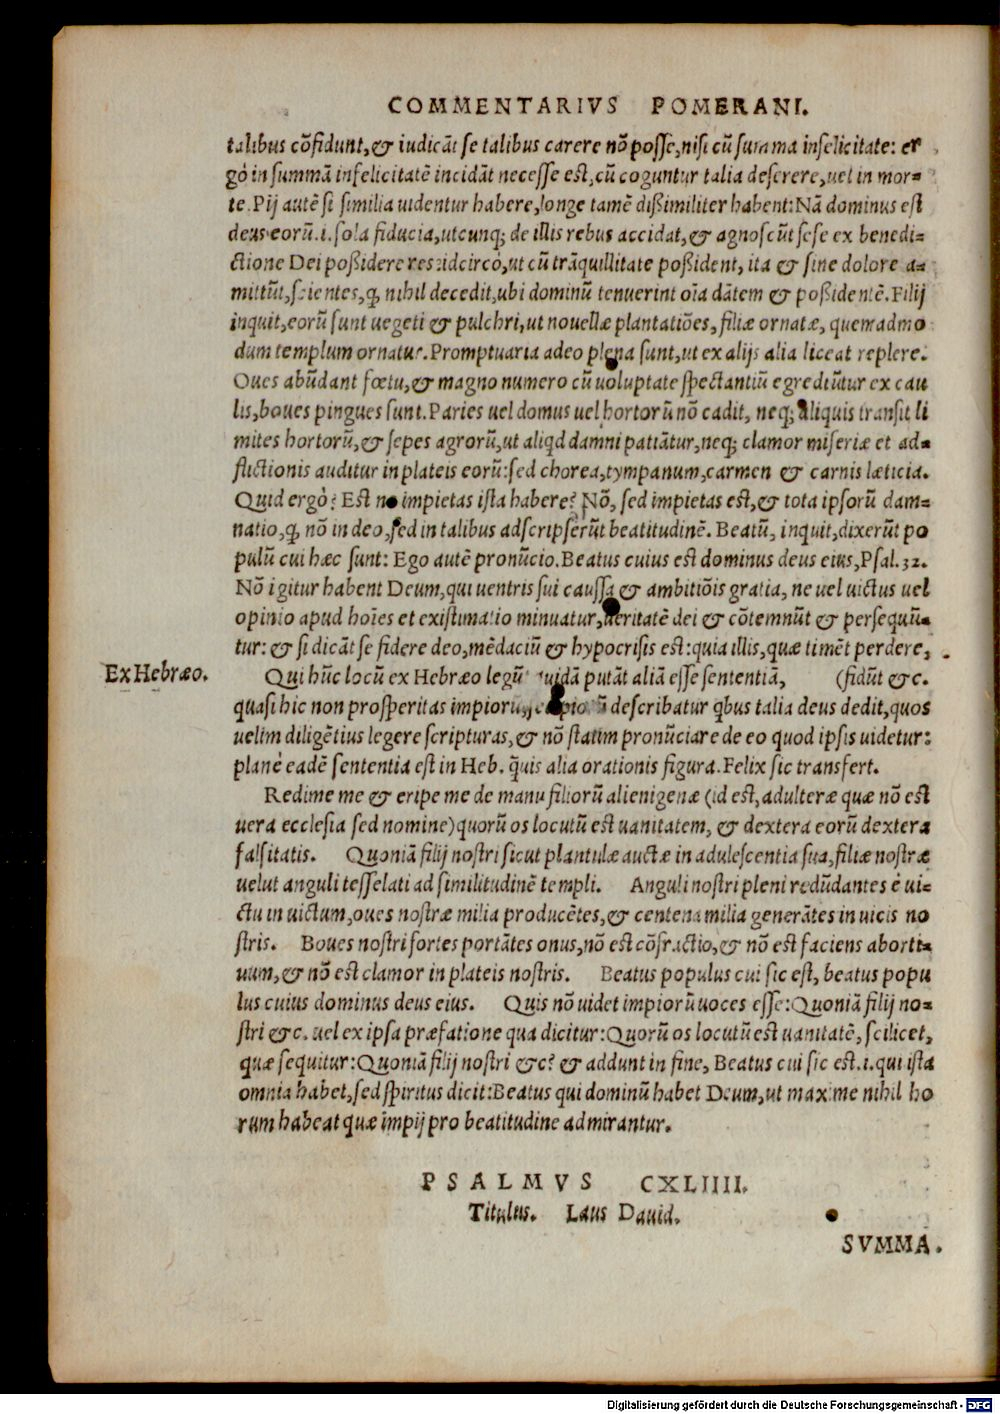 COMMENTARIVS POMERANI.
talibus cõfidunt,& iudicãt se talibus carere nõ posse,nisi cũ summa infelicitate: er
gò in summã infelicitatẽ incidãt necesse est,cũ coguntur talia deserere,uel in mor=
te.Pij autẽ si similia uidentur habere,longe tamẽ dißimiliter habent:Nã dominus est
deus eorũ.i.sola fiducia,utcunq; de illis rebus accidat,& agnoscũt sese ex benedi=
ctione Dei poßidere res:idcircò,ut cũ trãquillitate poßident, ita & sine dolore a=
mittũt,scientes,q̃ nihil decedit,ubi dominũ tenuerint oĩa dãtem & poßidentẽ.Filij
inquit,eorũ sunt uegeti & pulchri,ut nouellæ plantatiões, filiæ ornatæ, quemadmo
dum templum ornatur.Promptuaria adeo plena sunt,ut ex alijs alia liceat replere.
Oues abũdant fœtu,& magno numero cũ uoluptate spectantiũ egrediũtur ex cau
lis,boues pingues sunt.Paries uel domus uel hortorũ nõ cadit, neq; aliquis transit li
mites hortorũ,& sepes agrorũ,ut aliqd damni patiãtur,neq; clamor miseriæ et ad=
flictionis auditur in plateis eorũ:sed chorea,tympanum,carmen & carnis læticia.
Quid ergò? Est ne impietas ista habere? Nõ, sed impietas est,& tota ipsorũ dam=
natio,q̃ nõ in deo,sed in talibus adscripserũt beatitudinẽ. Beatũ, inquit,dixerũt po
pulũ cui hæc sunt: Ego autẽ pronũcio.Beatus cuius est dominus deus eius,Psal.32.
Nõ igitur habent Deum,qui uentris sui caussa & ambitiõis gratia, ne uel uictus uel
opinio apud hoĩes et existimatio minuatur,ueritatẽ dei & cõtemnũt & persequũ=
tur: & si dicãt se fidere deo,mẽdaciũ & hypocrisis est:quia illis,quæ timẽt perdere,
Ex Hebræo. Qui hũc locũ ex Hebræo legũt quidã putãt aliã esse sententiã, (fidũt &c.
quasi hic non prosperitas impiorũ,sed piorũ describatur qbus talia deus dedit,quos
uelim diligẽtius legere scripturas,& nõ statim pronũciare de eo quod ipsis uidetur:
planè eadẽ sententia est in Heb. q̃uis alia orationis figura.Felix sic transfert.
Redime me & eripe me de manu filiorũ alienigenæ (id est,adulteræ quæ nõ est
uera ecclesia sed nomine)quorũ os locutũ est uanitatem, & dextera eorũ dextera
falsitatis. Quoniã filij nostri sicut plantulæ auctæ in adulescentia sua,filiæ nostræ
uelut anguli tesselati ad similitudinẽ templi. Anguli nostri pleni redũdantes è ui=
ctu in uictum,oues nostræ milia producẽtes,& centena milia generãtes in uicis no
stris. Boues nostri fortes portãtes onus,nõ est cõfractio,& nõ est faciens aborti=
uum,& nõ est clamor in plateis nostris. Beatus populus cui sic est, beatus popu
lus cuius dominus deus eius. Quis nõ uidet impiorũ uoces esse:Quoniã filij no=
stri &c.uel ex ipsa præfatione qua dicitur:Quorũ os locutũ est uanitatẽ, scilicet,
quæ sequitur:Quoniã filij nostri &c? & addunt in fine, Beatus cui sic est.i.qui ista
omnia habet,sed spiritus dicit:Beatus qui dominũ habet Deum,ut maxime nihil ho
rum habeat quæ impij pro beatitudine admirantur.
PSALMVS CXLIIII.
Titulus. Laus Dauid.
SVMMA.
Digitalisierung gefördert durch die Deutsche Forschungsgemeinschaft - DFG